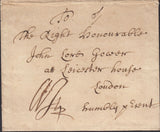 To
The Right Honourable
John Lord Gower
at Leicester house
London
humbly present